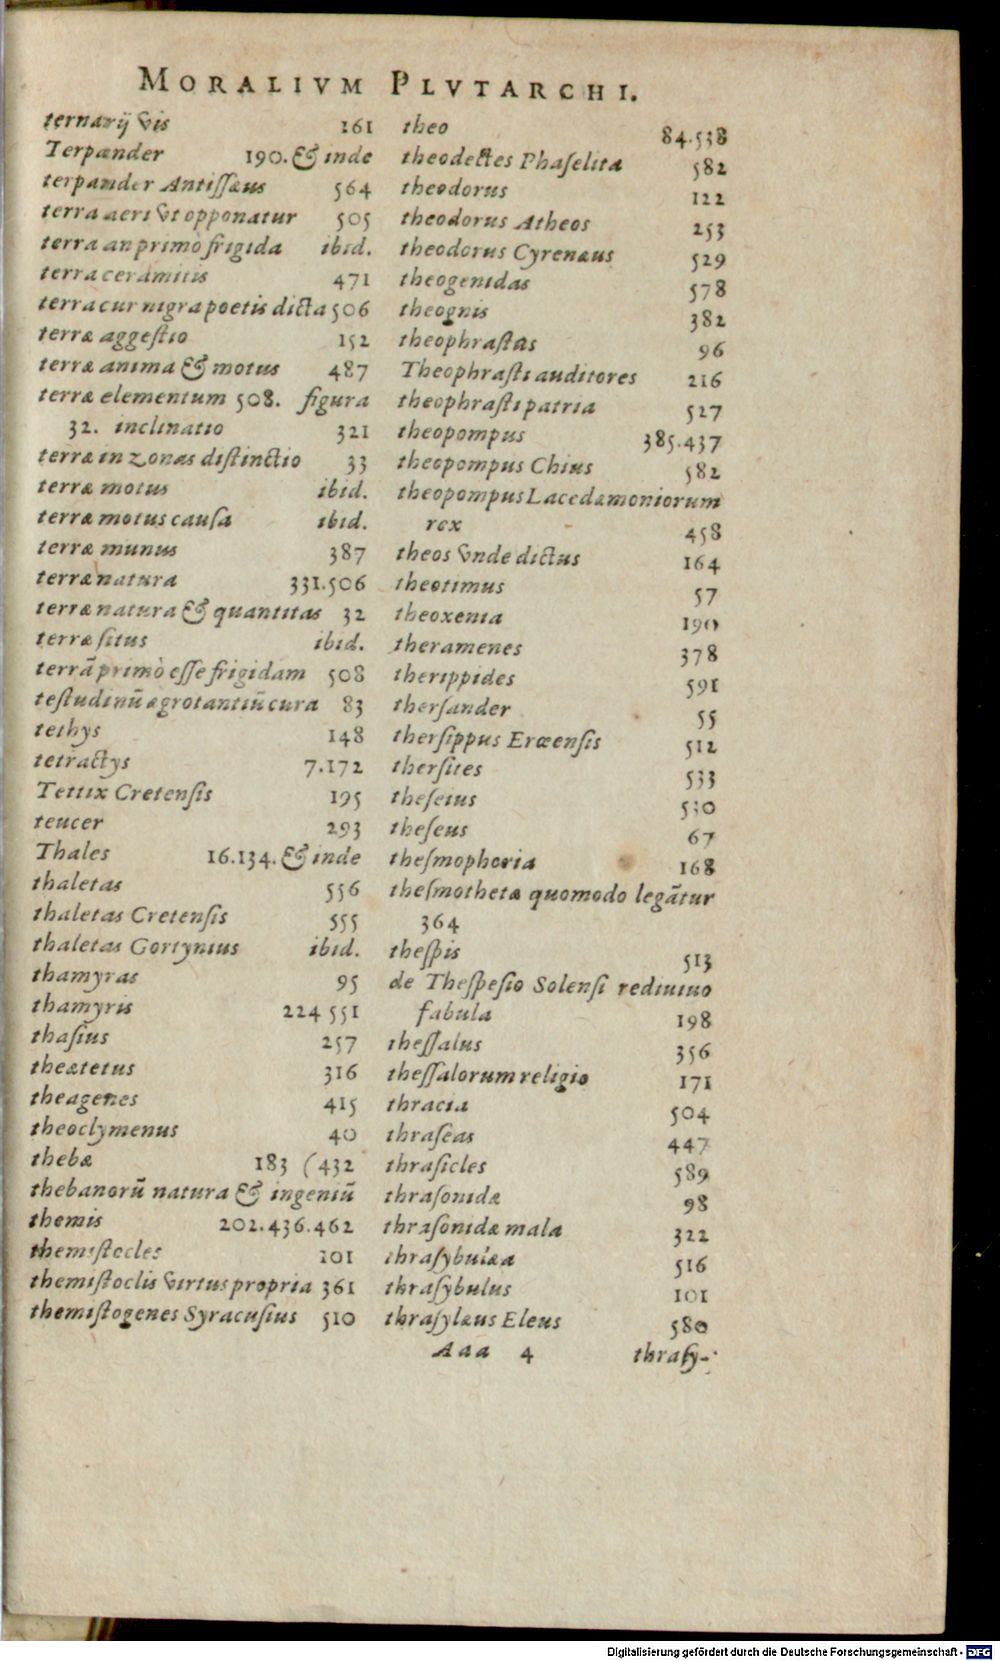 MORALIVM PLVTARCHI.
ternarij vis 161
Terpander 190. & inde
terpander Antissæus 564
terra aeri vt opponatur 505
terra an primò frigida ibid.
terra ceramitis 471
terra cur nigra poetis dicta 506
terræ aggestio 152
terræ anima & motus 487
terræ elementum 508. figura
32. inclinatio 321
terræ in zonas distinctio 33
terræ motus ibid.
terræ motus causa ibid.
terræ munus 387
terræ natura 331.506
terræ natura & quantitas 32
terræ situs ibid.
terrã primò esse frigidam 508
testudinũ ægrotantiũ cura 83
tethys 148
tetractys 7.172
Tettix Cretensis 195
teucer 293
Thales 16.134. & inde
thaletas 556
thaletas Cretensis 555
thaletas Gortynius ibid.
thamyras 95
thamyris 224 551
thasius 257
theætetus 316
theagenes 415
theoclymenus 40
thebæ 183 (432
thebanorũ natura & ingeniũ
themis 202.436.462
themistocles 101
themistoclis virtus propria 361
themistogenes Syracusius 510
theo 84.538
theodectes Phaselita 582
theodorus 122
theodorus Atheos 253
theodorus Cyrenæus 529
theogenidas 578
theognis 382
theophrastus 96
Theophrasti auditores 216
theophrasti patria 527
theopompus 385.437
theopompus Chius 582
theopompus Lacedæmoniorum
rex 458
theos vnde dictus 164
theotimus 57
theoxenia 190
theramenes 378
therippides 591
thersander 55
thersippus Eroeensis 512
thersites 533
theseius 530
theseus 67
thesmophoria 168
thesmothetæ quomodo legãtur
364
thespis 513
de Thespesio Solensi rediuiuo
fabula 198
thessalus 356
thessalorum religio 171
thracia 504
thraseas 447
thrasicles 589
thrasonidæ 98
thrasonidæ mala 322
thrasybulæa 516
thrasybulus 101
thrasylæus Eleus 580
Aaa 4 thrasy-
Digitalisierung gefördert durch die Deutsche Forschungsgemeinschaft - DFG